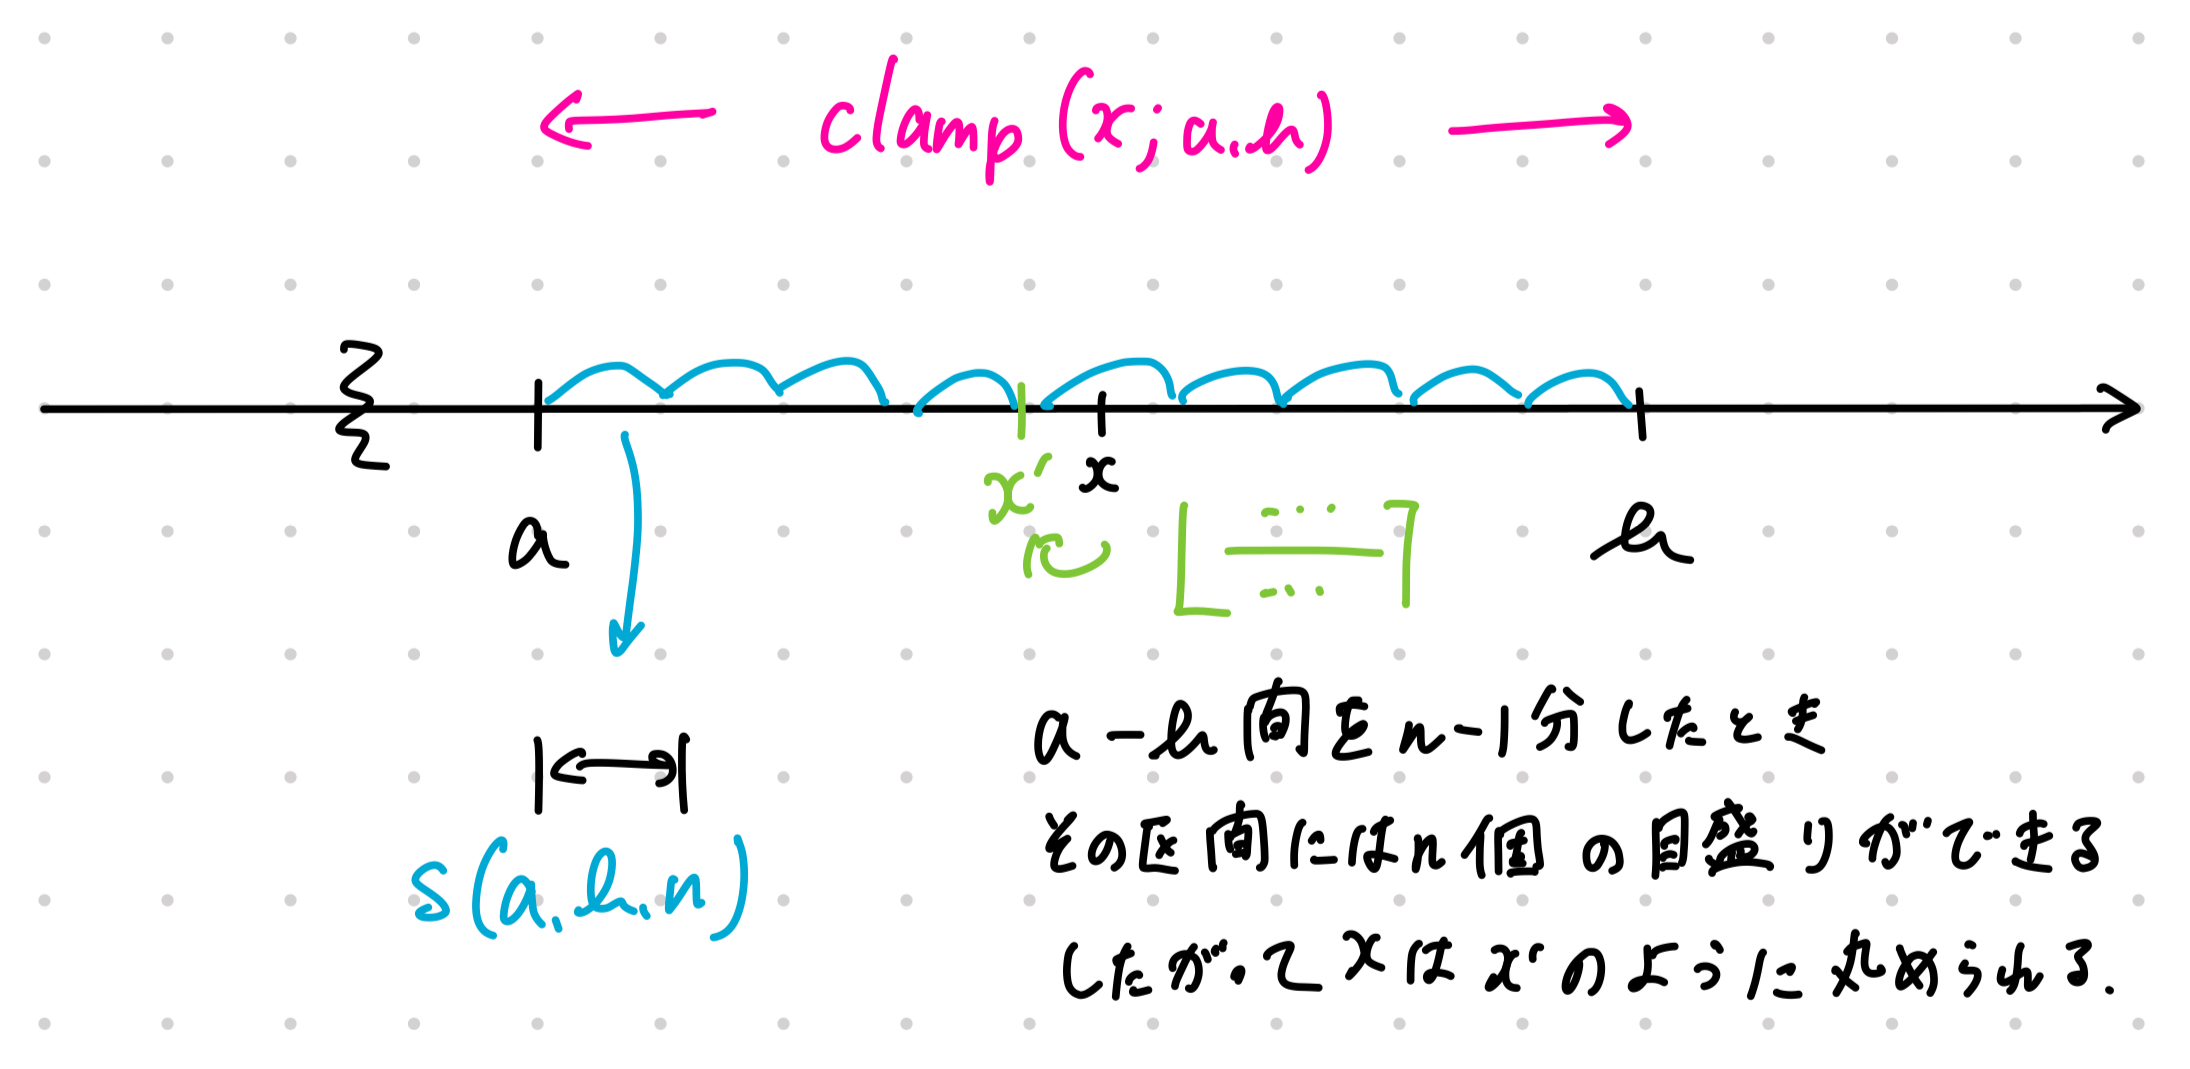 clamp(x; a, b)
a
x'
x
⌊ … / … ⌉
b
s(a, b, n)
a-b間をn-1分したとき
その区間にはn個の目盛りができる
したがってxはx'のように丸められる.